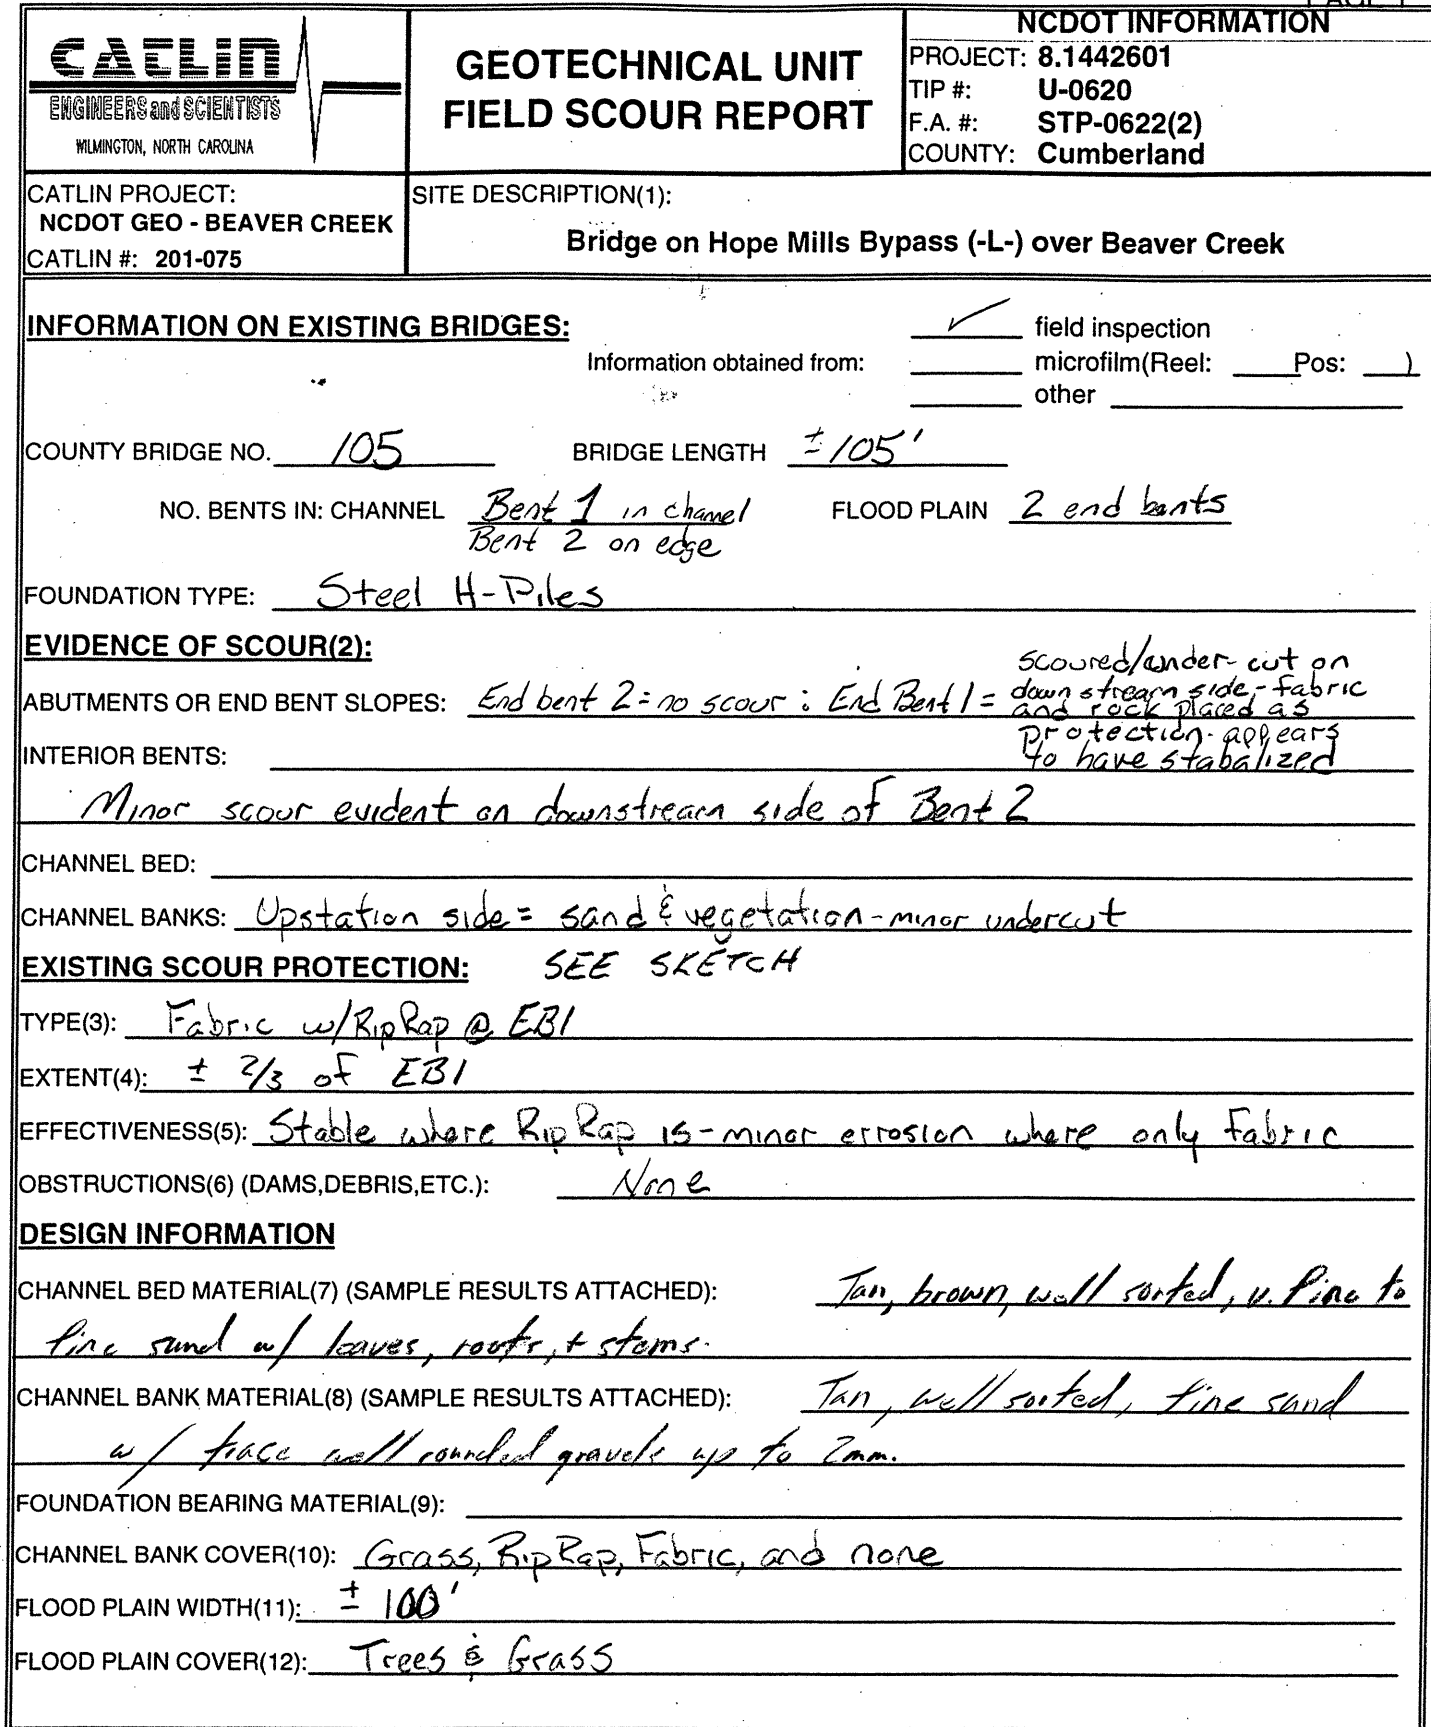 PAGE 1
CATLIN
ENGINEERS and SCIENTISTS
WILMINGTON, NORTH CAROLINA
GEOTECHNICAL UNIT
FIELD SCOUR REPORT
NCDOT INFORMATION
PROJECT: 8.1442601
TIP #: U-0620
F.A. #: STP-0622(2)
COUNTY: Cumberland
CATLIN PROJECT:
NCDOT GEO - BEAVER CREEK
CATLIN #: 201-075
SITE DESCRIPTION(1):
Bridge on Hope Mills Bypass (-L-) over Beaver Creek
INFORMATION ON EXISTING BRIDGES:
Information obtained from:
✓ field inspection
microfilm(Reel: Pos: )
other
COUNTY BRIDGE NO. 105 BRIDGE LENGTH ± 105'
NO. BENTS IN: CHANNEL Bent 1 in channel FLOOD PLAIN 2 end bents
Bent 2 on edge
FOUNDATION TYPE: Steel H-Piles
EVIDENCE OF SCOUR(2):
ABUTMENTS OR END BENT SLOPES: End bent 2 = no scour : End Bent 1 =
scoured/under-cut on
downstream side-fabric
and rock placed as
protection-appears
to have stabalized
INTERIOR BENTS:
Minor scour evident on downstream side of Bent 2
CHANNEL BED:
CHANNEL BANKS: Upstation side = sand & vegetation - minor undercut
EXISTING SCOUR PROTECTION: SEE SKETCH
TYPE(3): Fabric w/RipRap @ EB1
EXTENT(4): ± 2/3 of EB1
EFFECTIVENESS(5): Stable where RipRap is - minor errosion where only Fabric
OBSTRUCTIONS(6) (DAMS,DEBRIS,ETC.): None
DESIGN INFORMATION
CHANNEL BED MATERIAL(7) (SAMPLE RESULTS ATTACHED): Tan, brown, well sorted, v. fine to
fine sand w/ leaves, roots, + stems.
CHANNEL BANK MATERIAL(8) (SAMPLE RESULTS ATTACHED): Tan, well sorted, fine sand
w/ trace well rounded gravels up to 2mm.
FOUNDATION BEARING MATERIAL(9):
CHANNEL BANK COVER(10): Grass, RipRap, Fabric, and none
FLOOD PLAIN WIDTH(11): ± 100'
FLOOD PLAIN COVER(12): Trees & Grass